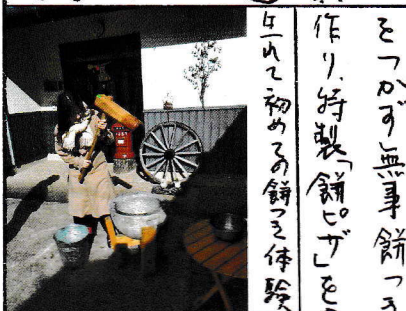 をつかず」無事餅つき
作り、特製「餅ピザ」を
生れて初めての餅つき体験